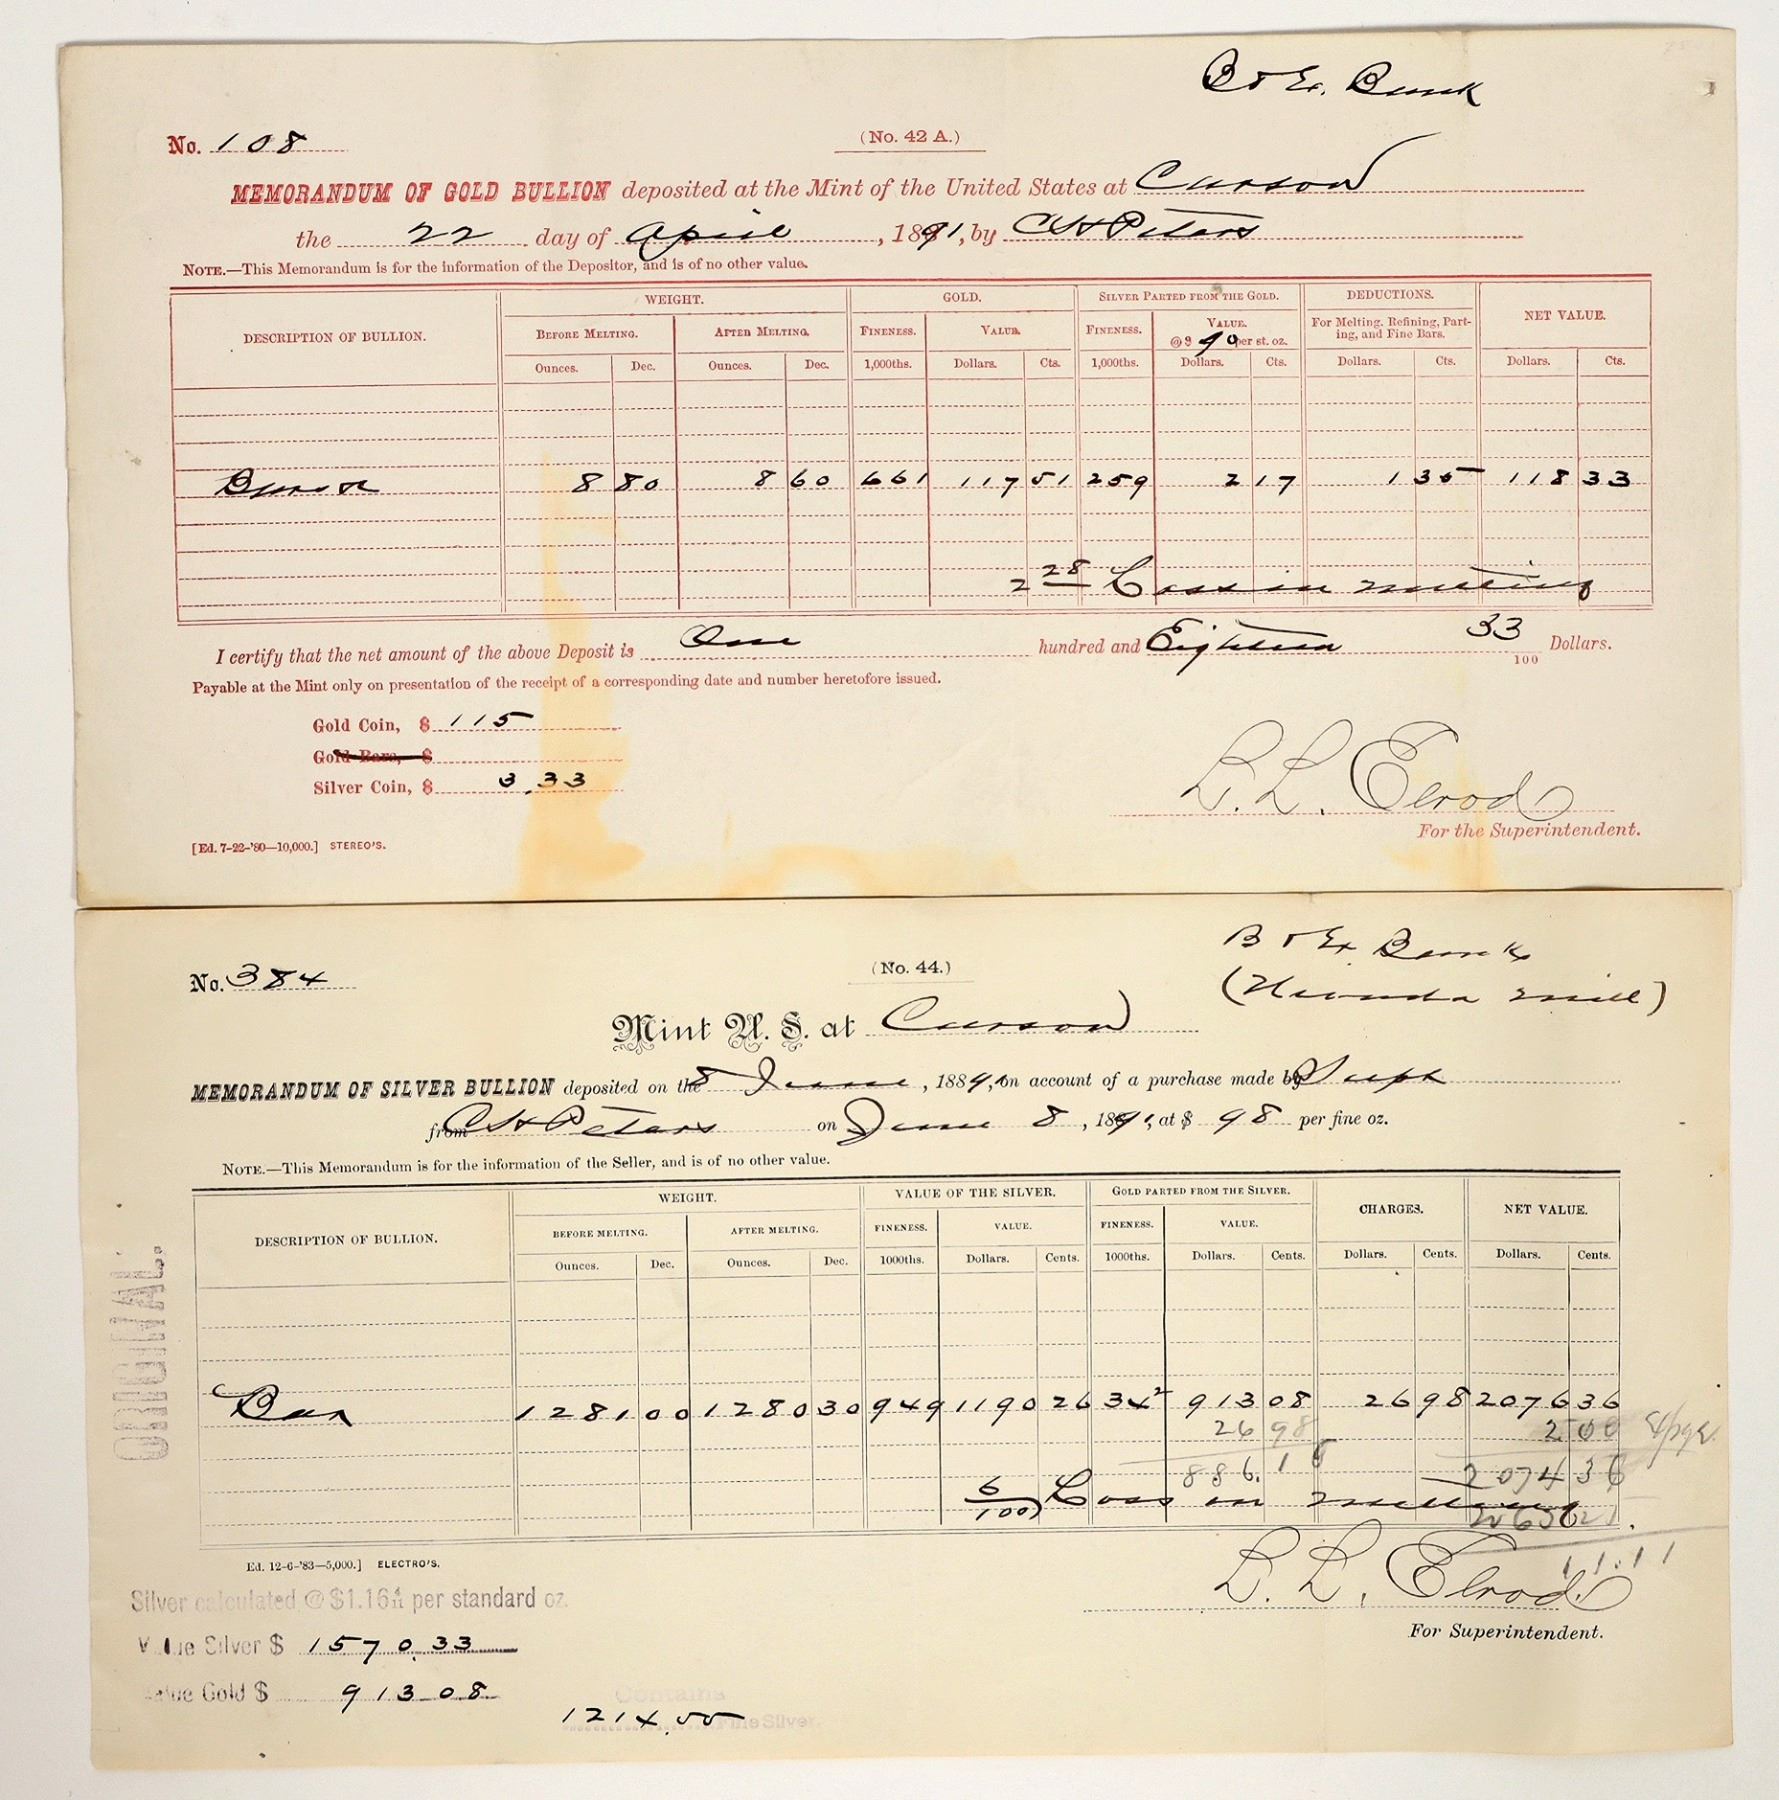 B & Ex. Bank
No. 108
(No. 42 A.)
MEMORANDUM OF GOLD BULLION deposited at the Mint of the United States at Carson
the 22 day of April, 1891, by C H Peters
NOTE.—This Memorandum is for the information of the Depositor, and is of no other value.
DESCRIPTION OF BULLION. WEIGHT. GOLD. SILVER PARTED FROM THE GOLD. DEDUCTIONS. NET VALUE.
BEFORE MELTING. AFTER MELTING. FINENESS. VALUE. FINENESS. VALUE. @ $ 90 per st. oz. For Melting, Refining, Parting, and Fine Bars.
Ounces. Dec. Ounces. Dec. 1,000ths. Dollars. Cts. 1,000ths. Dollars. Cts. Dollars. Cts. Dollars. Cts.
8 80 8 60 661 117 51 259 2 17 1 35 118 33
2 28 Loss in melting
I certify that the net amount of the above Deposit is One hundred and Eighteen 33/100 Dollars.
Payable at the Mint only on presentation of the receipt of a corresponding date and number heretofore issued.
Gold Coin, $ 115
Gold Bars, $
Silver Coin, $ 3.33
L. L. Elrod
For the Superintendent.
[Ed. 7-22-'80—10,000.] STEREO'S.
B & Ex Bank
(Nevada mill)
No. 384
(No. 44.)
Mint U. S. at Carson
MEMORANDUM OF SILVER BULLION deposited on the 8 June, 1891, on account of a purchase made by Supt
from C H Peters on June 8, 1891, at $ 98 per fine oz.
NOTE.—This Memorandum is for the information of the Seller, and is of no other value.
DESCRIPTION OF BULLION. WEIGHT. VALUE OF THE SILVER. GOLD PARTED FROM THE SILVER. CHARGES. NET VALUE.
BEFORE MELTING. AFTER MELTING. FINENESS. VALUE. FINENESS. VALUE.
Ounces. Dec. Ounces. Dec. 1000ths. Dollars. Cents. 1000ths. Dollars. Cents. Dollars. Cents. Dollars. Cents.
Bar 1281 00 1280 30 949 1190 26 34² 913 08 26 98 2076 36
26 98 2 00
886.1 2074 36
6/100 Loss in melting
11.11
ORIGINAL.
L. L. Elrod
For Superintendent.
Ed. 12-6-'83—5,000.] ELECTRO'S.
Silver calculated @ $1.16 4/11 per standard oz.
Value Silver $ 1570.33
Value Gold $ 913 08
Contains
1214.55 Fine Silver.